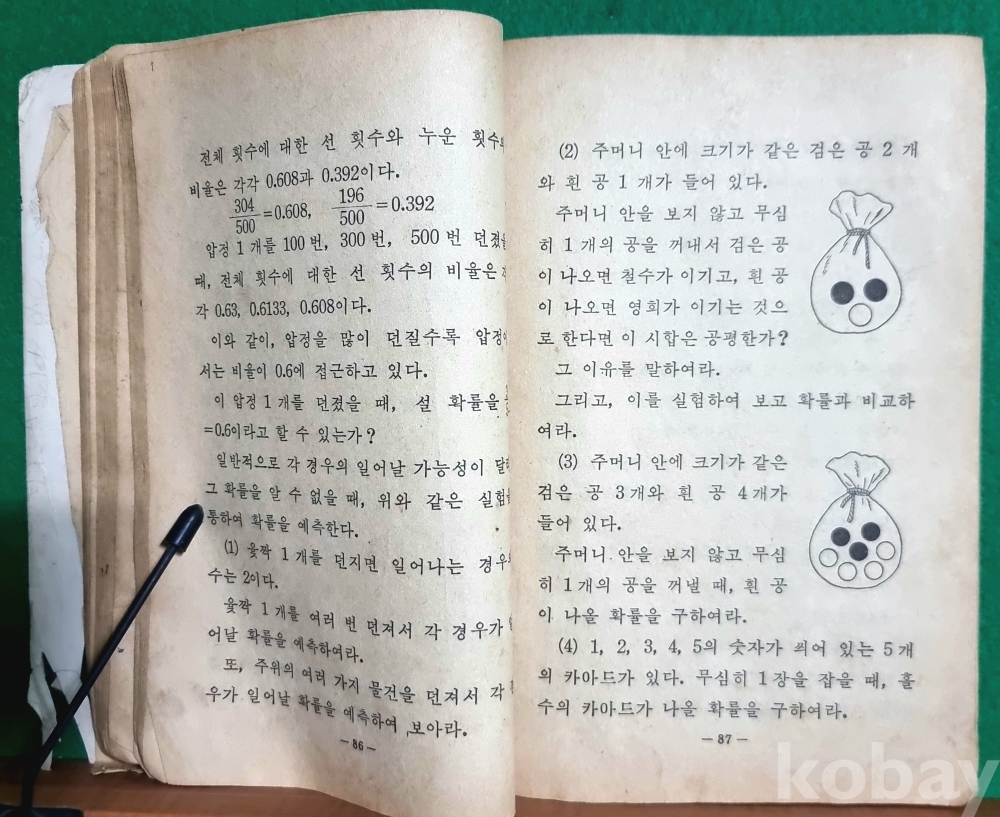 전체 횟수에 대한 선 횟수와 누운 횟수의
비율은 각각 0.608과 0.392이다.
304/500=0.608, 196/500=0.392
압정 1개를 100번, 300번, 500번 던졌을
때, 전체 횟수에 대한 선 횟수의 비율은 각
각 0.63, 0.6133, 0.608이다.
이와 같이, 압정을 많이 던질수록 압정이
서는 비율이 0.6에 접근하고 있다.
이 압정 1개를 던졌을 때, 설 확률을
=0.6이라고 할 수 있는가?
일반적으로 각 경우의 일어날 가능성이 달라
그 확률을 알 수 없을 때, 위와 같은 실험을
통하여 확률을 예측한다.
(1) 윷짝 1개를 던지면 일어나는 경우의
수는 2이다.
윷짝 1개를 여러 번 던져서 각 경우가 일
어날 확률을 예측하여라.
또, 주위의 여러 가지 물건을 던져서 각 경
우가 일어날 확률을 예측하여 보아라.
— 86 —
(2) 주머니 안에 크기가 같은 검은 공 2개
와 흰 공 1개가 들어 있다.
주머니 안을 보지 않고 무심
히 1개의 공을 꺼내서 검은 공
이 나오면 철수가 이기고, 흰 공
이 나오면 영희가 이기는 것으
로 한다면 이 시합은 공평한가?
그 이유를 말하여라.
그리고, 이를 실험하여 보고 확률과 비교하
여라.
(3) 주머니 안에 크기가 같은
검은 공 3개와 흰 공 4개가
들어 있다.
주머니 안을 보지 않고 무심
히 1개의 공을 꺼낼 때, 흰 공
이 나올 확률을 구하여라.
(4) 1, 2, 3, 4, 5의 숫자가 씌어 있는 5개
의 카아드가 있다. 무심히 1장을 잡을 때, 홀
수의 카아드가 나올 확률을 구하여라.
— 87 —
kobay